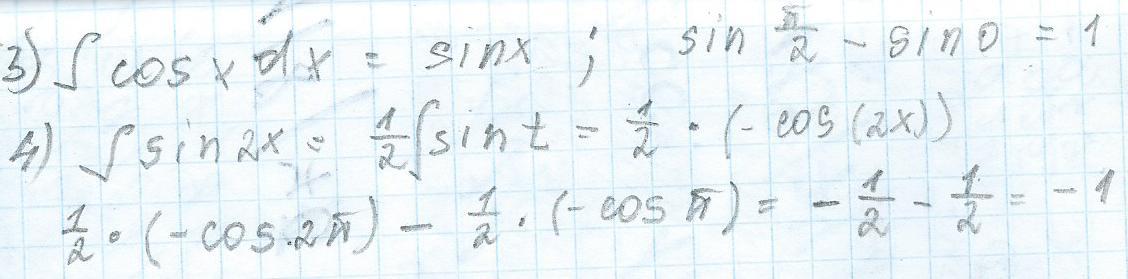 3) ∫ cos x dx = sin x ; sin π/2 - sin 0 = 1
4) ∫ sin 2x = 1/2 ∫ sin t = 1/2 · (- cos (2x))
1/2 · (-cos 2π) - 1/2 · (-cos π) = - 1/2 - 1/2 = - 1